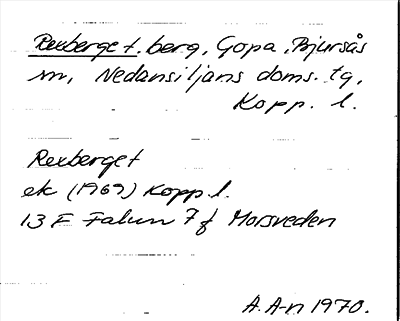 Rexberget. berg, Gopa, Bjursås
sn, Nedansiljans doms. tg,
Kopp. l.
Rexberget
ek (1969) Kopp l.
13 F Falun 7 f Morsveden
A. A-n 1970.